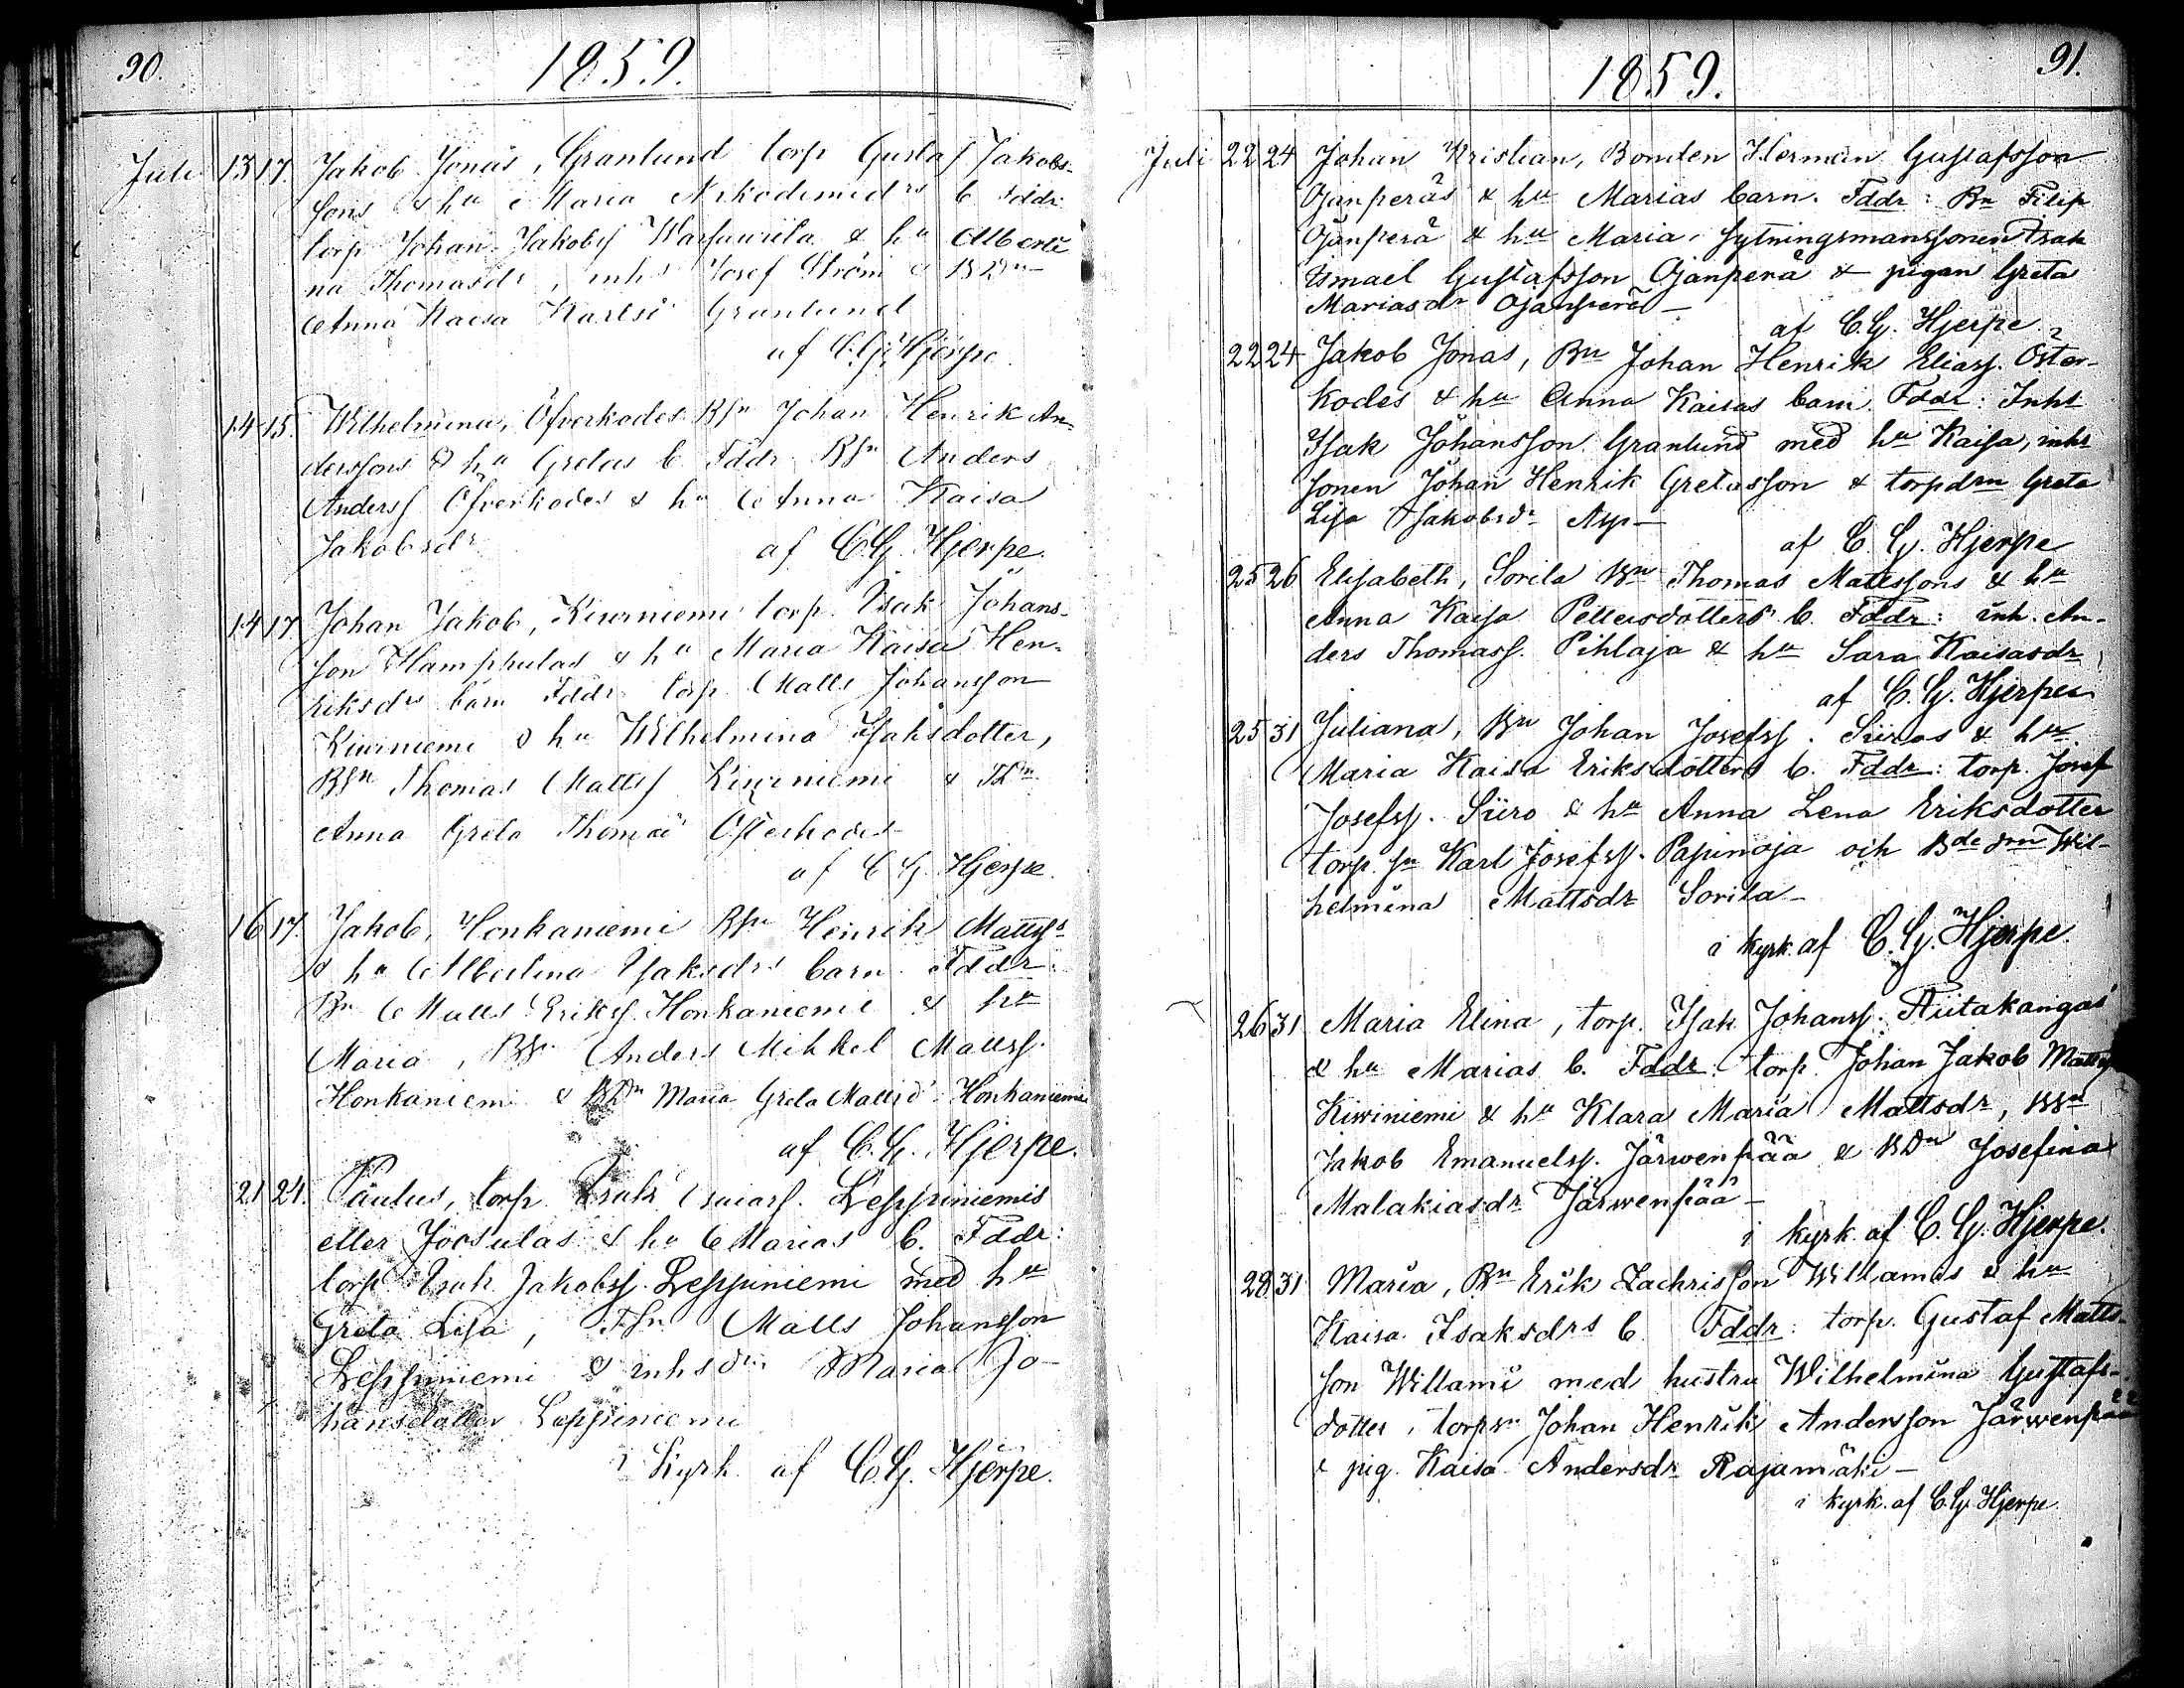 90.
1859.
Juli 13 17. Jakob Jonas, Granlund torp Gustaf Jakobs-
sons & hu Maria Nikodemidrs b Fddr:
torp Johan Jakobs & hu Alberti
na Thomasdr, inhs Josef Ström &
Anna Kaisa Karlsd Granlund
af C. G. Hjerpe.
14 15. Wilhelmina, Öfverkodes Bsn Johan Henrik An-
derssons & hu Gretas b Fddr Bsn Anders
Anderss Öfverkodes & hu Anna Kaisa
Jakobsdr
af C. G. Hjerpe.
14 17 Johan Jakob, Kiwiniemi torp. Isak Johans-
son Hamphulas & hu Maria Kaisa Hen-
riksdrs barn Fddr torp Matts Johansson
Kiwiniemi & hu Wilhelmina Isaksdotter,
Bsn Thomas Mattss Kiwiniemi &
Anna Greta Österkodes
af C. G. Hjerpe.
16 17. Jakob, Honkaniemi Bsn Henrik Mattss
& hu Albertina Isaksdrs barn. Fddr:
Bn Matts Erikss. Honkaniemi & hu
Maria, Bsn Anders Mikkel Mattss.
Honkaniemi & BDn Maria Greta Mattsd. Honkaniemi
af C. G. Hjerpe.
21 24. Paulus, torp Isak Leppiniemis
eller Joosulas & hu Marias b. Fddr:
torp Isak Jakobss. Leppiniemi med hu
Greta Lisa, Tsn Matts Johansson
Leppiniemi & inhsdn Maria Jo-
hansdotter Leppiniemi
i Kyrk. af C. G. Hjerpe.
91.
1859.
Juli 22 24 Johan Kristian, Bonden Herman Gustafsson
Ojanperäs & hu Marias barn. Fddr: Bn Filip
Ojanperä & hu Maria, sytningsmanssonen Isak
Ismael Gustafsson Ojanperä & pigan Greta
Mariasdr Ojanperä –
af C. G. Hjerpe
22 24 Jakob Jonas, Bn Johan Henrik Eliass. Öster-
kodes & hu Anna Kaisas barn. Fddr: Inhs
Isak Johansson Granlund med hu Kaisa, inhs
sonen Johan Henrik Gretasson & torpdrn Greta
Lisa Jakobsdr Asp –
af C. G. Hjerpe
25 26 Elisabeth, Sorila Bn Thomas Mattssons & hu
Anna Kaisa Pettersdotters b. Fddr: inh. An-
ders Thomass. Pihlaja & hu Sara Kaisasdr
af C. G. Hjerpe
25 31 Juliana, Bn Johan Josefss. Siiros & hu
Maria Kaisa Eriksdotters b. Fddr: torp. Josef
Josefss. Siiro & hu Anna Lena Eriksdotter
torp. sn Karl Josefss. Papinoja och Bde drn Wil-
helmina Mattsdr Sorila –
i kyrk. af C. G. Hjerpe.
26 31 Maria Elina, torp. Isak Johanss. Riitakangas
& hu Marias b. Fddr: torp. Johan Jakob Mattss
Kiwiniemi & hu Klara Maria Mattsdr, Bsn
Jakob Emanuelss. Järwenpää & BDn Josefina
Malakiasdr Järwenpää –
i kyrk. af C. G. Hjerpe.
28 31 Maria, Bn Erik Zachrisson Willamos & hu
Kaisa Isaksdrs b. Fddr: torp. Gustaf Matts-
son Willamo med hustru Wilhelmina Gustafs-
dotter, torpsn Johan Henrik Andersson Järwenpää
& pig. Kaisa Andersdr Rajamäki –
i kyrk. af C. G. Hjerpe.